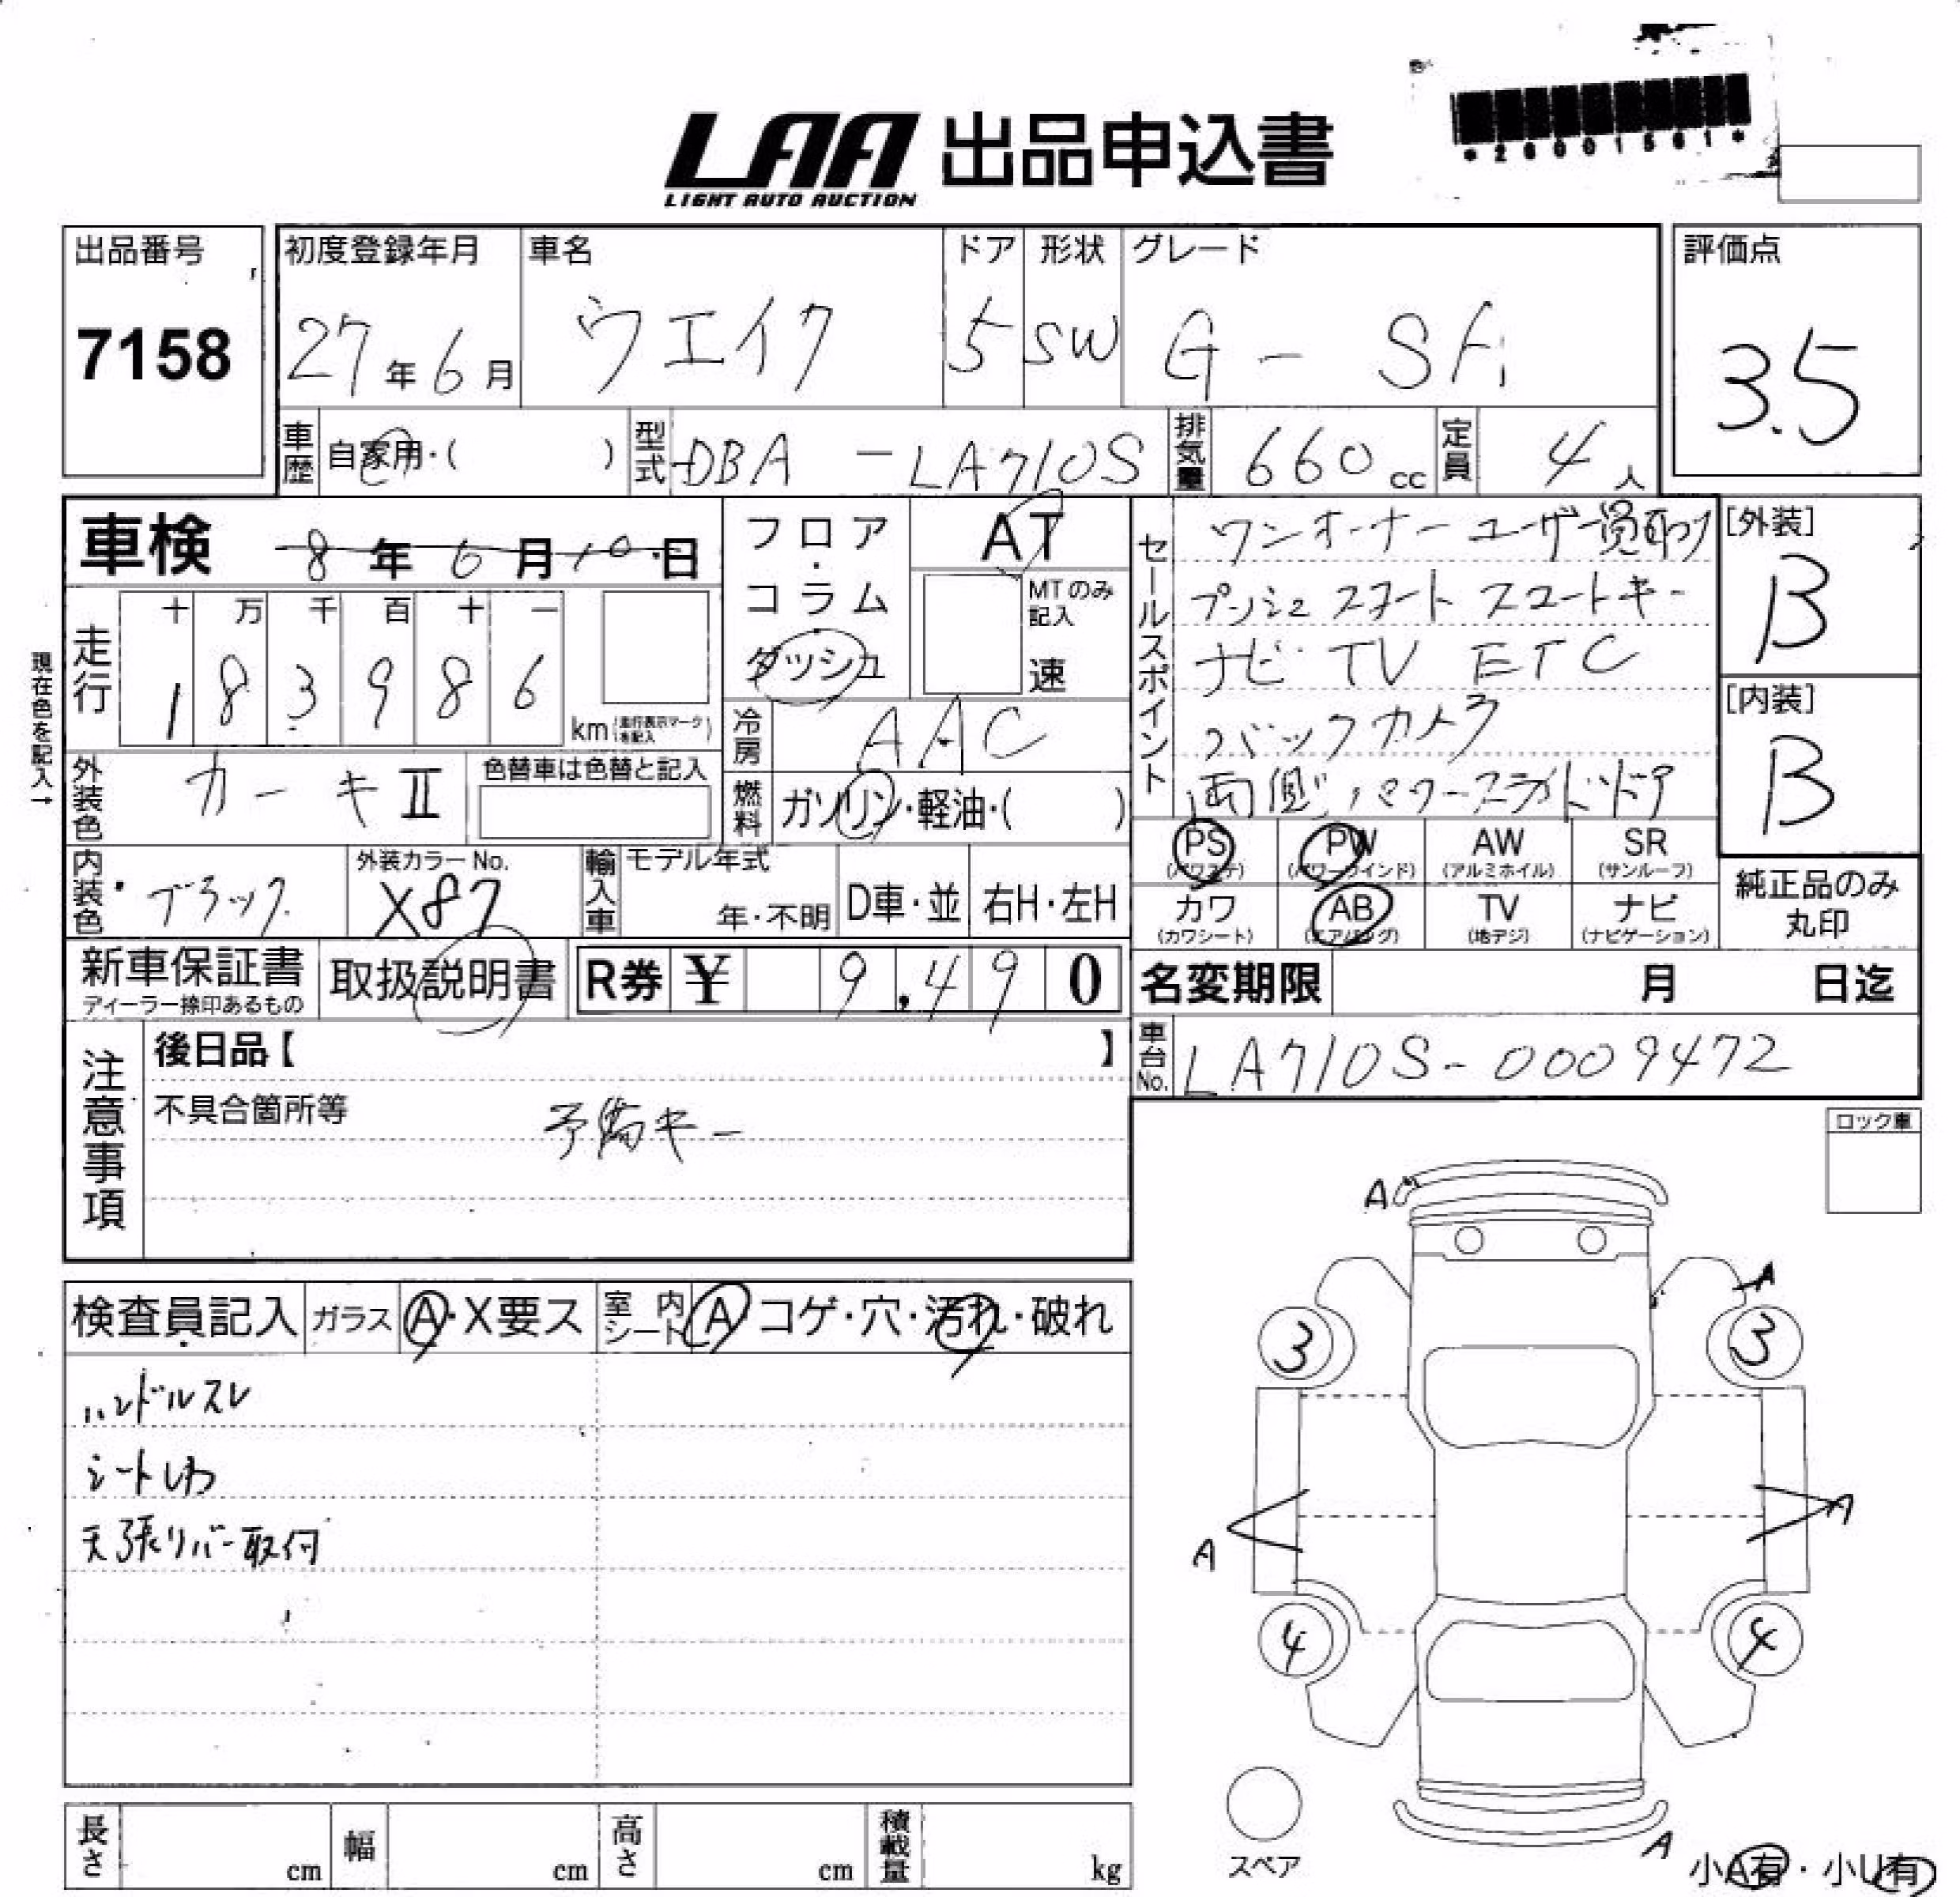 *26001561*
LAA 出品申込書
LIGHT AUTO AUCTION
出品番号
7158
初度登録年月
27年6月
車名
ウエイク
ドア
5
形状
SW
グレード
G - SA
評価点
3.5
車歴
自家用・( )
型式
DBA - LA710S
排気量
660cc
定員
4人
車検
8年6月10日
フロア・コラム
ダッシュ
AT
MTのみ記入
速
セールスポイント
ワンオーナー ユーザー買取り
プッシュスタート スマートキー
ナビ TV ETC
バックカメラ
両側パワースライドドア
[外装]
B
[内装]
B
現在色を記入→
走行
十 万 千 百 十 一
1 8 3 9 8 6
km(走行表示マークを記入)
冷房
AAC
外装色
カーキⅡ
色替車は色替と記入
燃料
ガソリン・軽油・( )
PS PW AW SR
(パワステ) (パワーウインド) (アルミホイル) (サンルーフ)
カワ AB TV ナビ
(カワシート) (エアバッグ) (地デジ) (ナビゲーション)
純正品のみ
丸印
内装色
ブラック
外装カラーNo.
X87
輸入車
モデル年式
年・不明
D車・並
右H・左H
新車保証書
ディーラー捺印あるもの
取扱説明書
R券 ¥ 9,490
名変期限 月 日迄
車台No.
LA710S-0009472
注意事項
後日品【 】
不具合箇所等
予備キー
ロック車
検査員記入 ガラス A・X要ス 室内シート A コゲ・穴・汚れ・破れ
ハンドルスレ
シートしわ
天張りバー取付
A
A
3 3
A A
4 4
スペア
A
小A有・小U有
長さ cm 幅 cm 高さ cm 積載量 kg